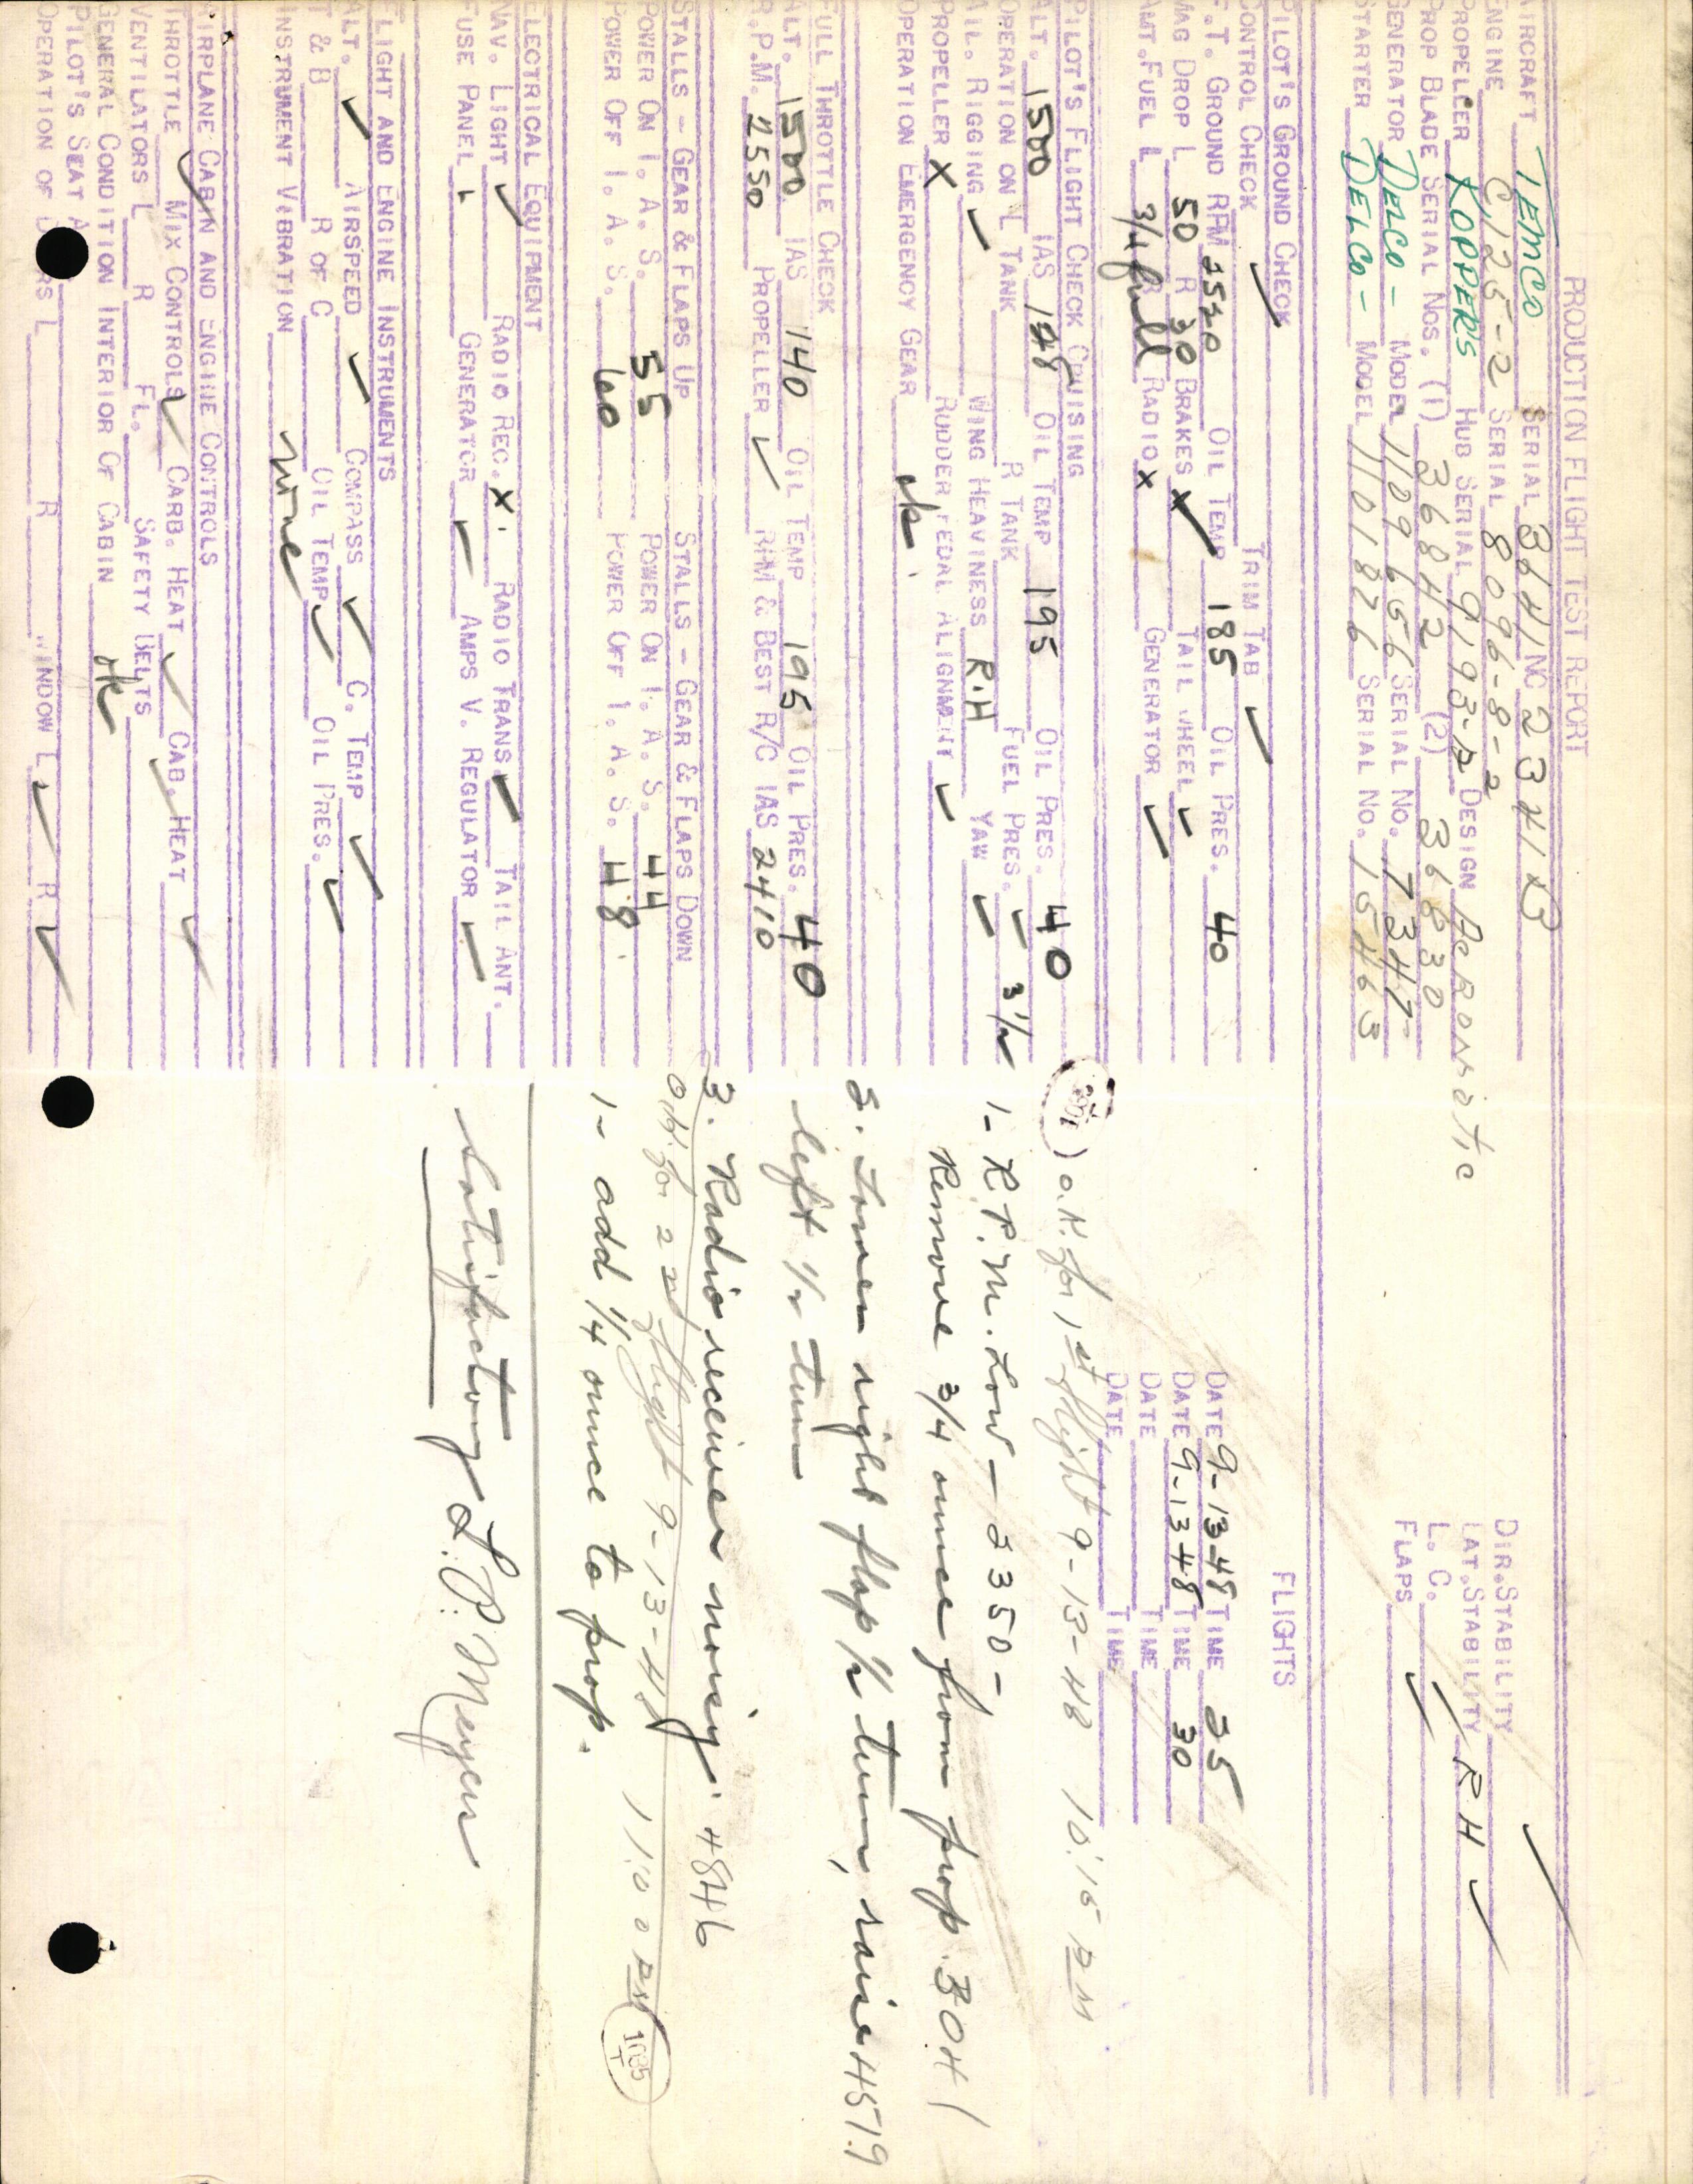 PRODUCTION FLIGHT TEST REPORT
AIRCRAFT TEMCO SERIAL 3641 NC 2341B
ENGINE C125-2 SERIAL 8096-8-2
PROPELLER KOPPERS HUB SERIAL 9193-2 DESIGN AERONATIC
PROP BLADE SERIAL NOS. (1) 36842 (2) 36830
GENERATOR DELCO - MODEL 1109656 SERIAL NO. 17347
STARTER DELCO - MODEL 1101826 SERIAL NO. 15463
DIR. STABILITY
LAT. STABILITY RH
L. C.
FLAPS
PILOT'S GROUND CHECK
CONTROL CHECK TRIM TAB
F. T. GROUND RPM 2520 OIL TEMP 185 OIL PRES. 40
MAG DROP L 50 R 30 BRAKES X TAIL WHEEL
AMT. FUEL L 3/4 R full RADIO X GENERATOR
FLIGHTS
DATE 9-13-48 TIME 25
DATE 9-13-48 TIME 30
DATE TIME
DATE TIME
PILOT'S FLIGHT CHECK CRUISING
ALT. 1500 IAS 128 OIL TEMP 195 OIL PRES. 40
OPERATION ON L TANK R TANK FUEL PRES. 3 1/2
AIL. RIGGING WING HEAVINESS R.H YAW
PROPELLER X RUDDER PEDAL ALIGNMENT
OPERATION EMERGENCY GEAR ok.
FULL THROTTLE CHECK
ALT. 1500 IAS 140 OIL TEMP 195 OIL PRES. 40
R.P.M. 2550 PROPELLER RPM & BEST R/C IAS 2410
STALLS - GEAR & FLAPS UP STALLS - GEAR & FLAPS DOWN
POWER ON I. A. S. 55 POWER ON I. A. S. 44
POWER OFF I. A. S. 60 POWER OFF I. A. S. 48
ELECTRICAL EQUIPMENT
NAV. LIGHT RADIO REC. X RADIO TRANS TAIL ANT.
FUSE PANEL GENERATOR AMPS V. REGULATOR
FLIGHT AND ENGINE INSTRUMENTS
ALT. AIRSPEED COMPASS C. TEMP
T & B R OF C OIL TEMP OIL PRES.
INSTRUMENT VIBRATION None
AIRPLANE CABIN AND ENGINE CONTROLS
THROTTLE MIX CONTROLS CARB. HEAT CAB. HEAT
VENTILATORS L R FL. SAFETY BELTS
GENERAL CONDITION INTERIOR OF CABIN ok
PILOT'S SEAT A
OPERATION OF DOORS L R WINDOW L R
O.K. for 1st flight 9-13-48 10:15 AM
1- R.P.M. Low - 2350 -
Remove 3/4 ounce from prop. 3041
2. Lower right flap 1/2 turn, raise 4519
left 1/2 turn
3. Radio receiver noisy. 4846
O.K. for 2nd flight 9-13-48 1:10
1- add 1/4 ounce to prop.
Satisfactory L.P. Meyers